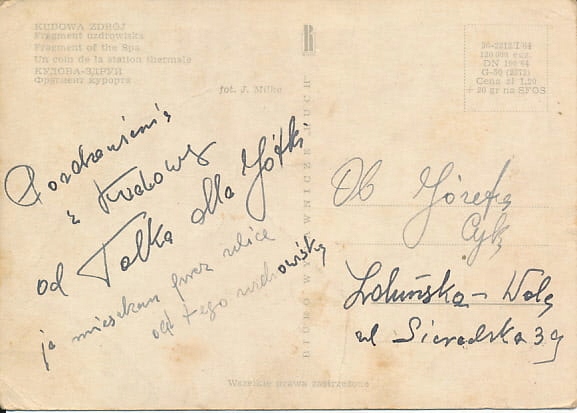 KUDOWA ZDRÓJ
Fragment uzdrowiska
Fragment of the Spa
Un coin de la station thermale
КУДОВА-ЗДРУЙ
Фрагмент курорта
fot. J. Milka
R
BIURO WYDAWNICZE RUCH
36-2212/I/64
120.000 egz.
DN 190/64
G-50 (2372)
Cena zł 1,20
+ 20 gr na SFOS
Pozdrowienia
z Kudowy
od Tolka dla Józki
ja mieszkam przez ulicę
od tego uzdrowiska
Ob Józefa
Cyk
Zduńska-Wola
ul Sieradzka 39
Wszelkie prawa zastrzeżone